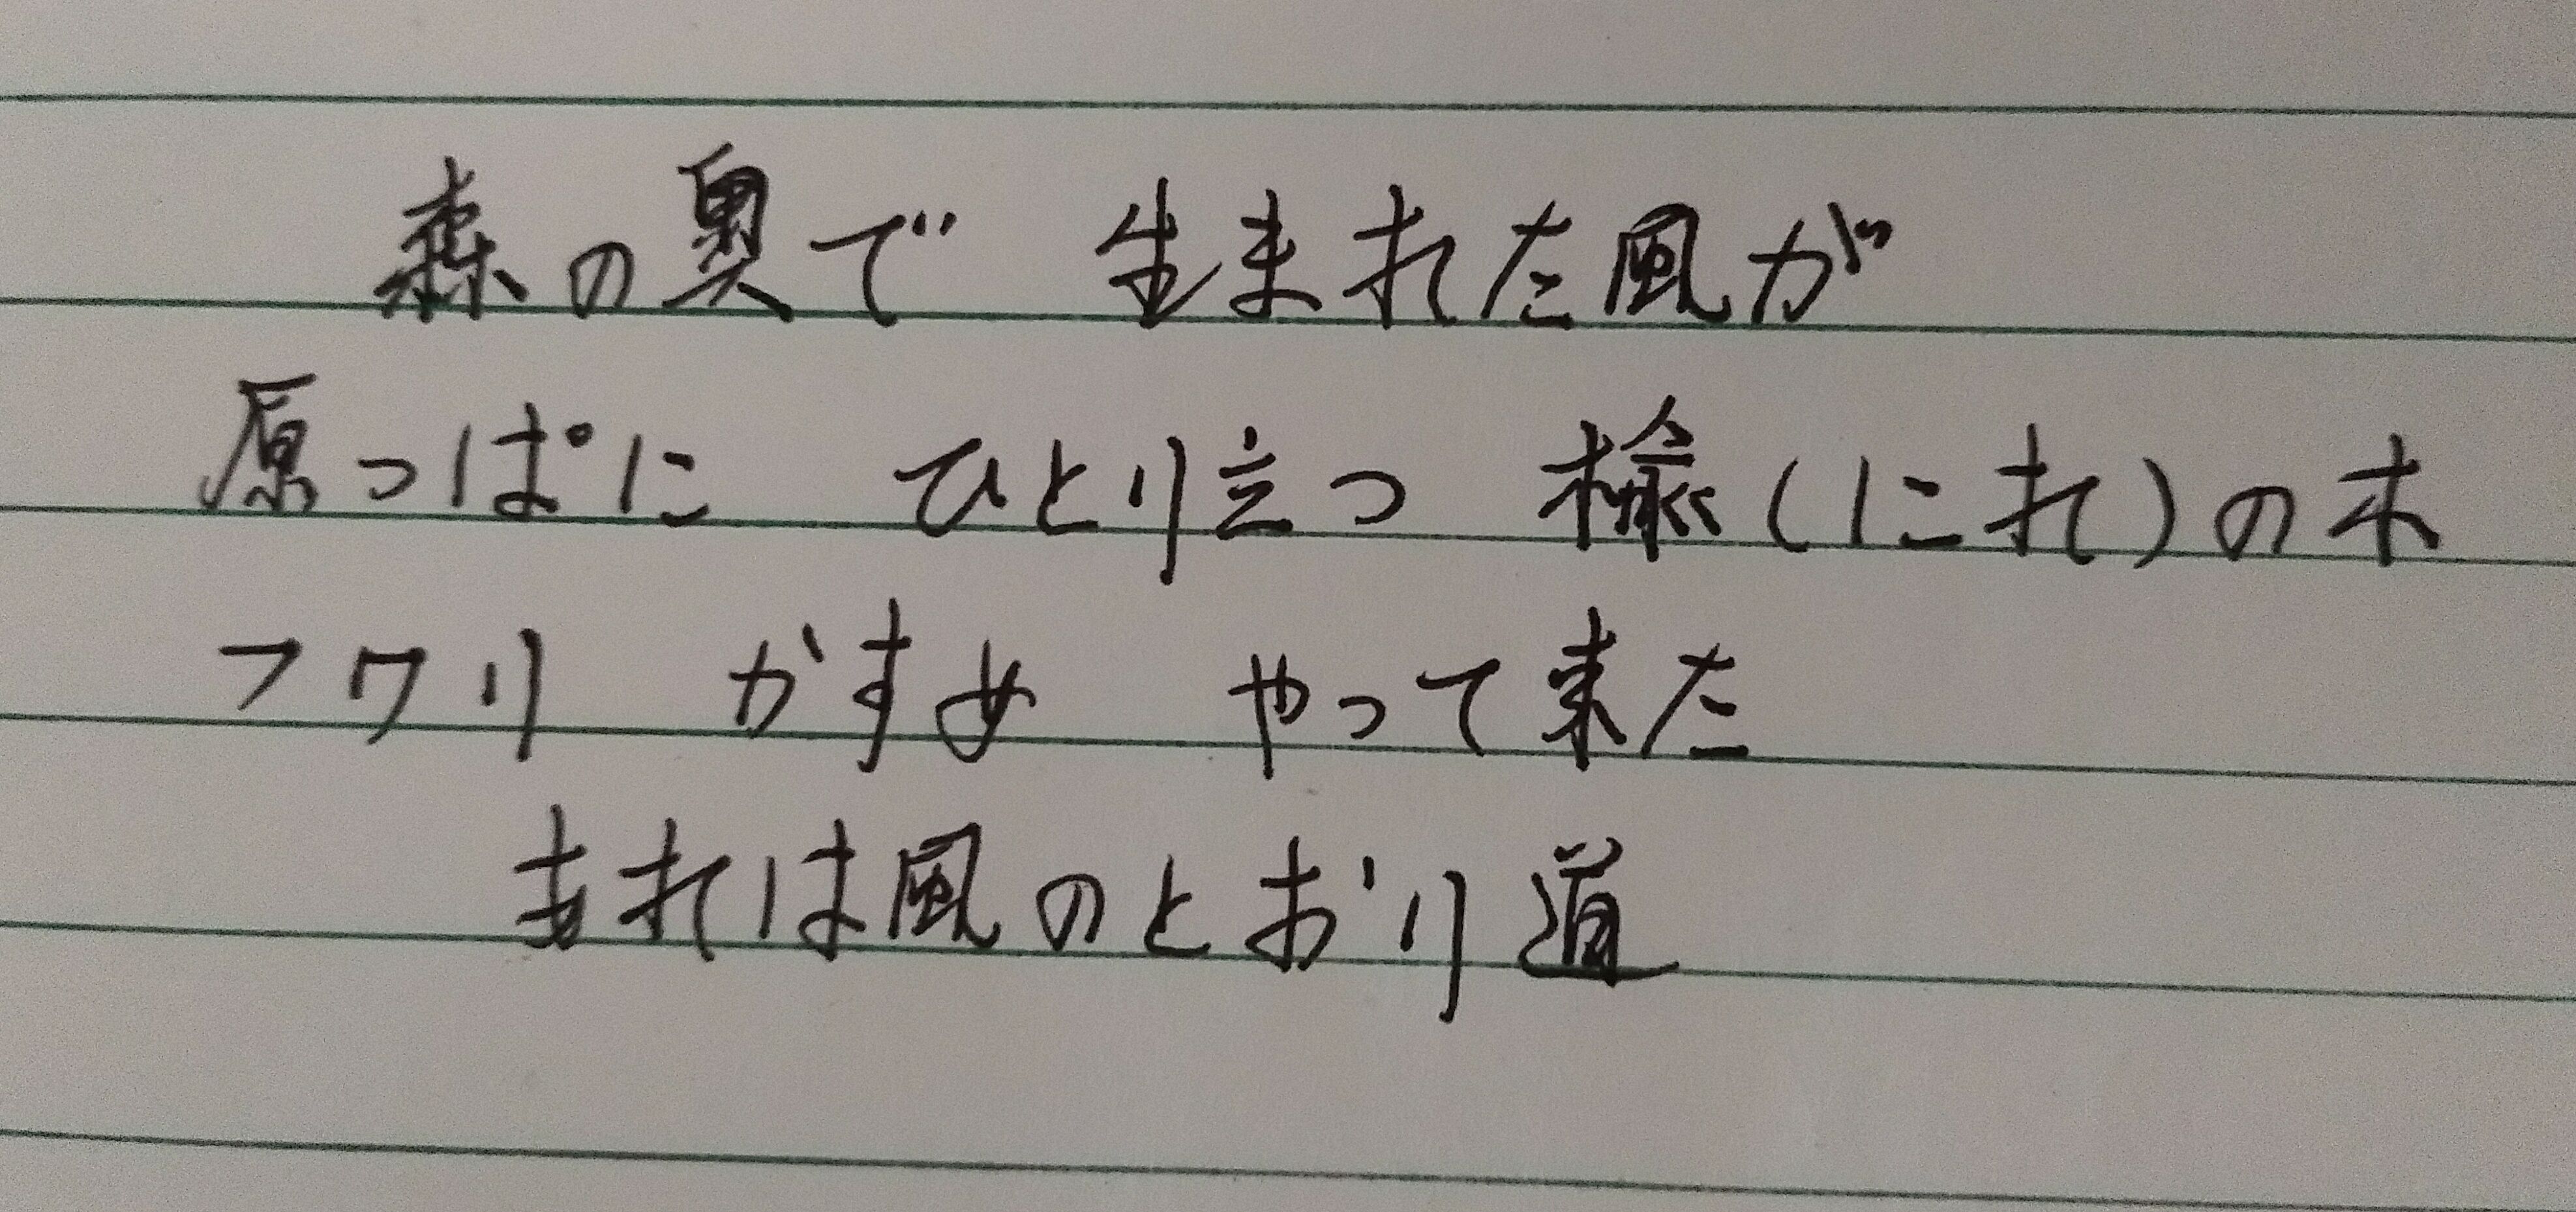 森の奥で 生まれた風が
原っぱに ひとり立つ 楡(にれ)の木
フワリ かすめ やって来た
あれは風のとおり道